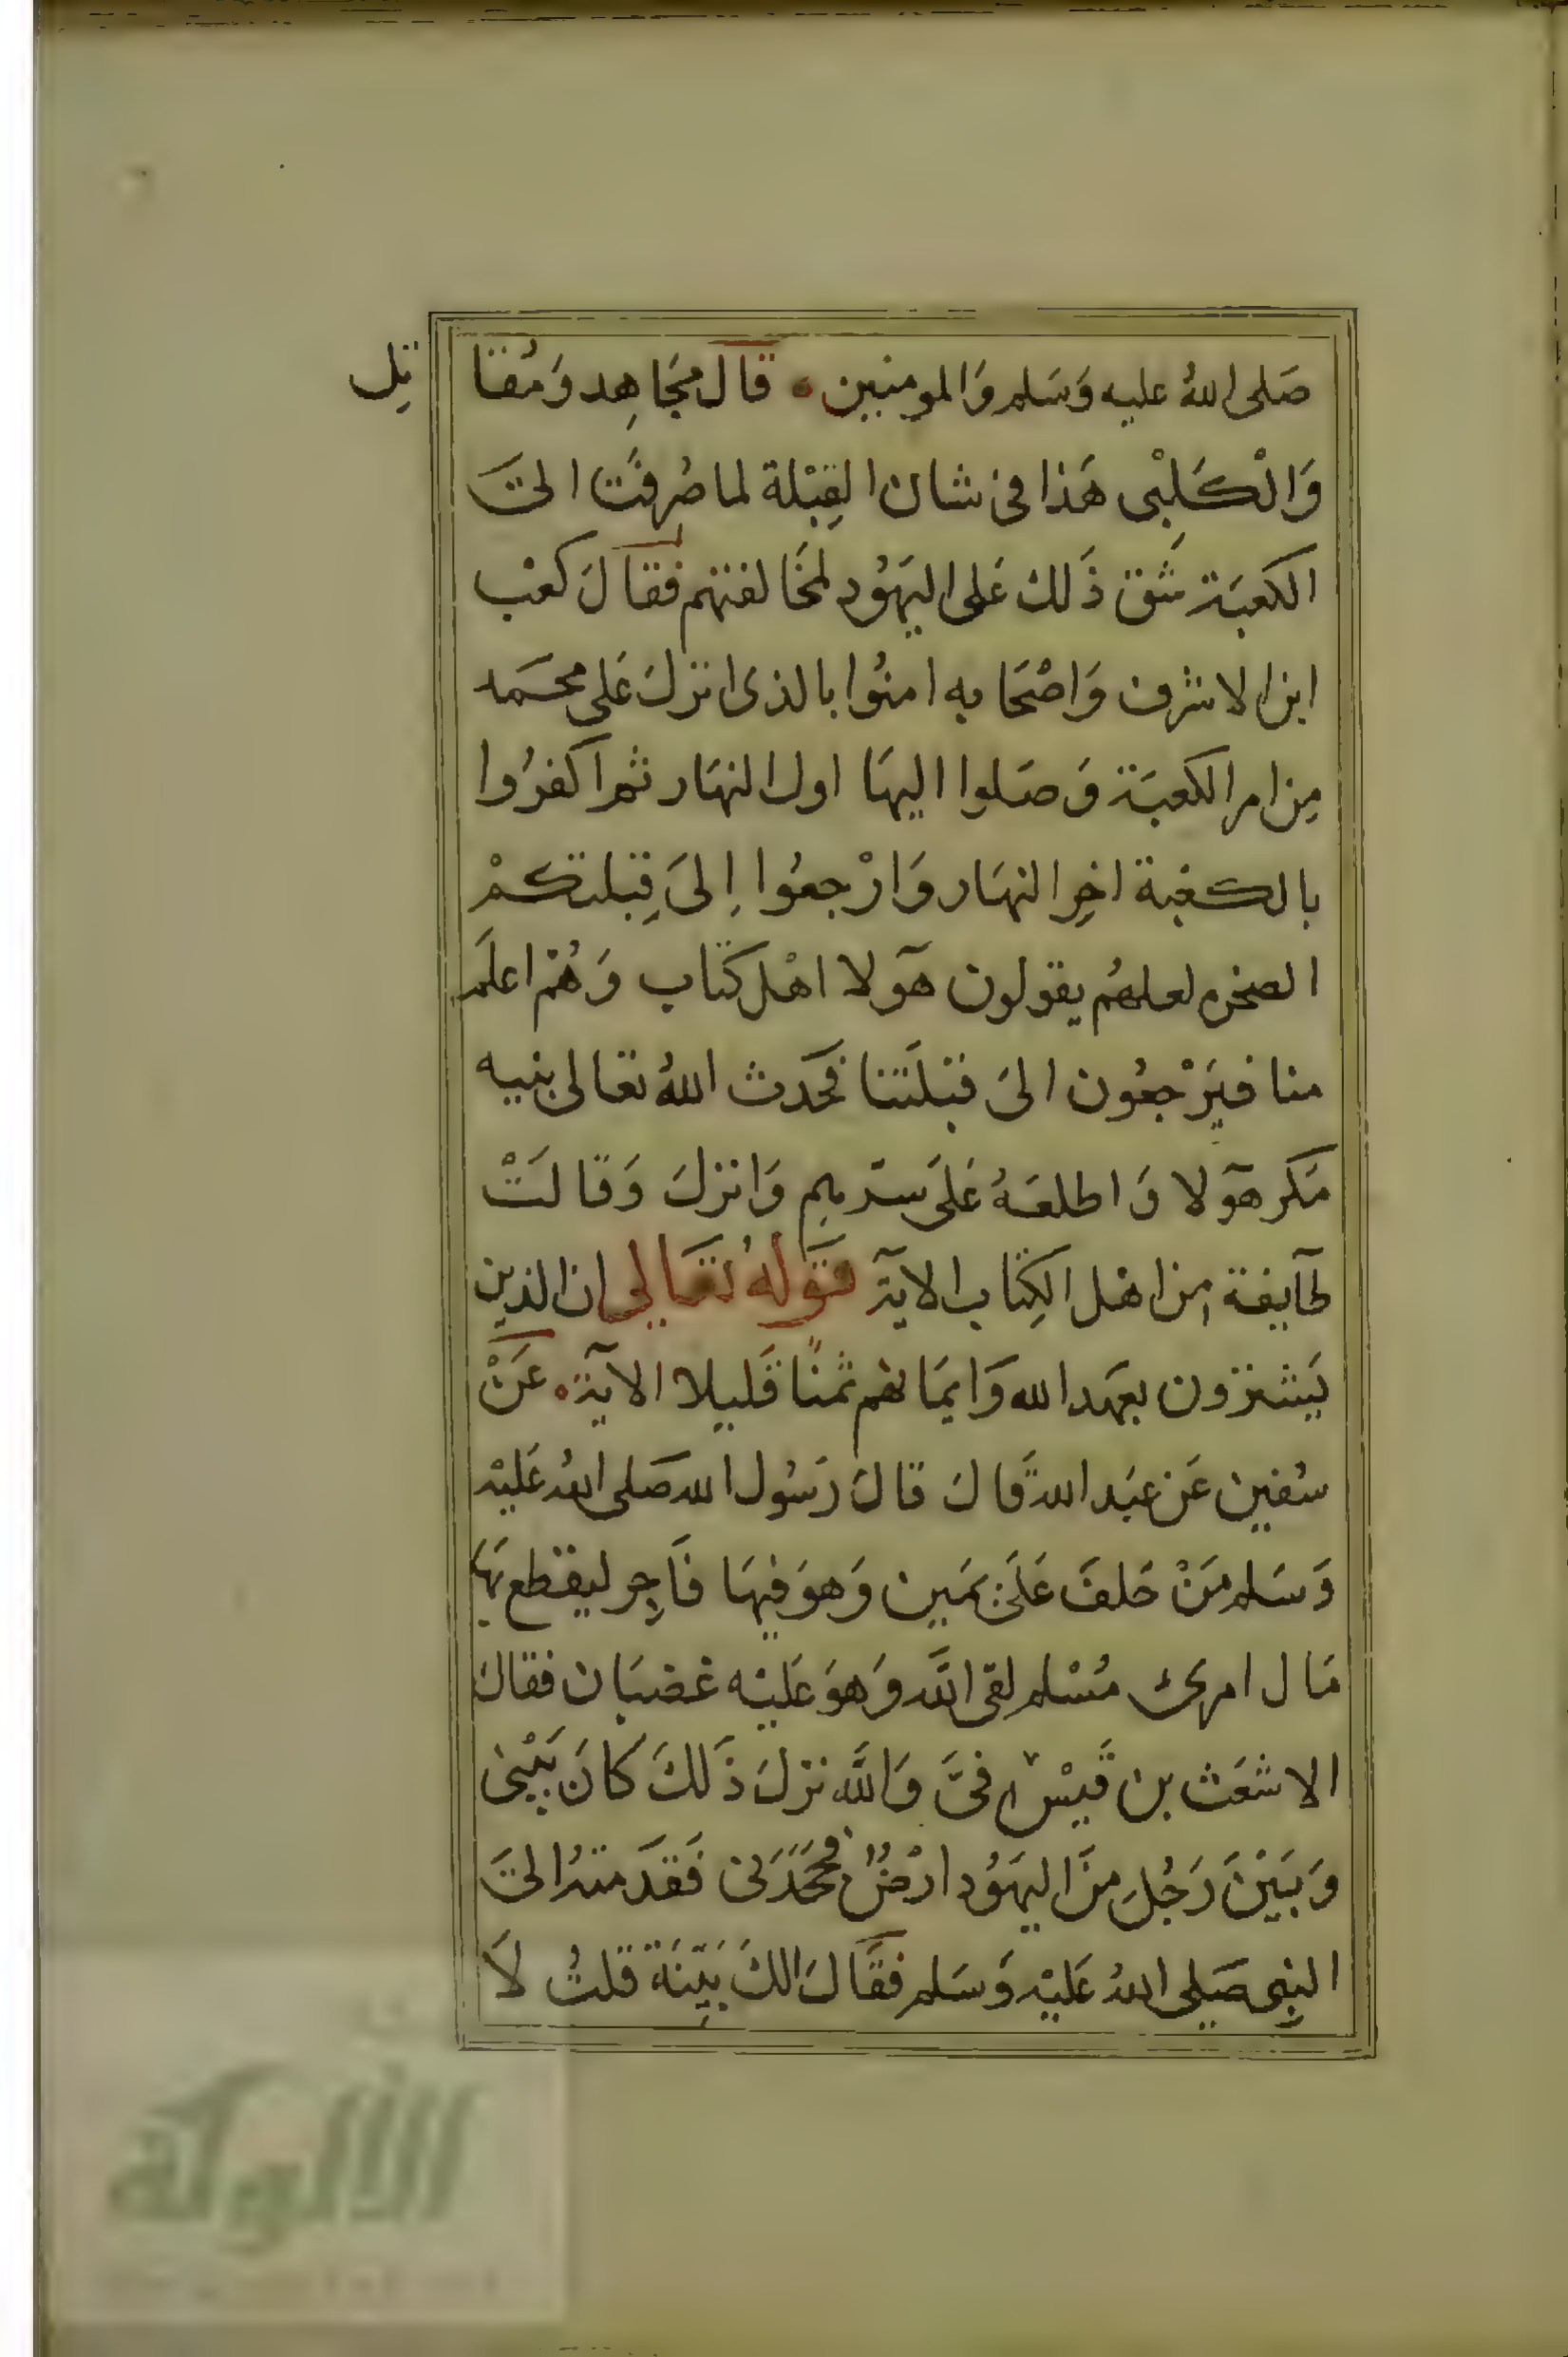 صَلى اللهُ عليه وَسَلم وَالمومنين ۰ قال مجَاهِد وَمُقا
تِل
وَالْكَلِبْى هَذا فى شان القِبْلة لما صُرِفَت الىَ
الكعبَة شَق ذَلك عَلى اليَهوُد لمخَالفتهم فقالَ كعْب
ابن الاشرف وَاصْحَابه امنُوا بالذى انزلَ عَلى محسَمد
مِن امر الكعبَة وَصَلوا اليهَا اول النهَار ثم اكفرُوا
بالكعْبة اخِر النهَار وَارْجعُوا إلىَ قِبلتكمْ
الصخره لعلهُم يقولون هَٓولا اهْل كتَاب وَهُمْ اعلَم
منا فيَرْجعُون الىَ قبْلَتنا فحَدث اللهُ تعَالى نبيه
مَكر هَٓولا وَاطلعَهُ عَلىَ سرّهِم وَانزلَ وَقالَتْ
طَآيفة مِن اهْل الكِتاب الايَة قَولهُ تعَالى ان الذين
يَشترون بعهَد الله وَايمَانهم ثمنًا قَليلا الآيَة ۰ عَنْ
سُفين عَن عبَد الله قَالَ قالَ رَسُول الله صَلى اللهُ عَليْه
وَسَلم مَنْ حَلفَ عَلىَ يمَين وَهوَ فيهَا فَاجِر ليقطع بهَا
مَال امرىء مُسْلم لقى اللَّه وَهوَ عَليْه غضبَان فقالَ
الاشعَث بن قَيسْ فىَّ وَاللَّه نزلَ ذَلكَ كانَ بَيْنى
وَبَيْنَ رَجُلِ منَ اليهَوُد ارْضٌ فجحَدَنى فَقدَمتهُ الىَ
النبِى صَلى اللهُ عَليْه وَسَلم فقَالَ الكَ بَيّنَة قلتُ لَا
الألوكة